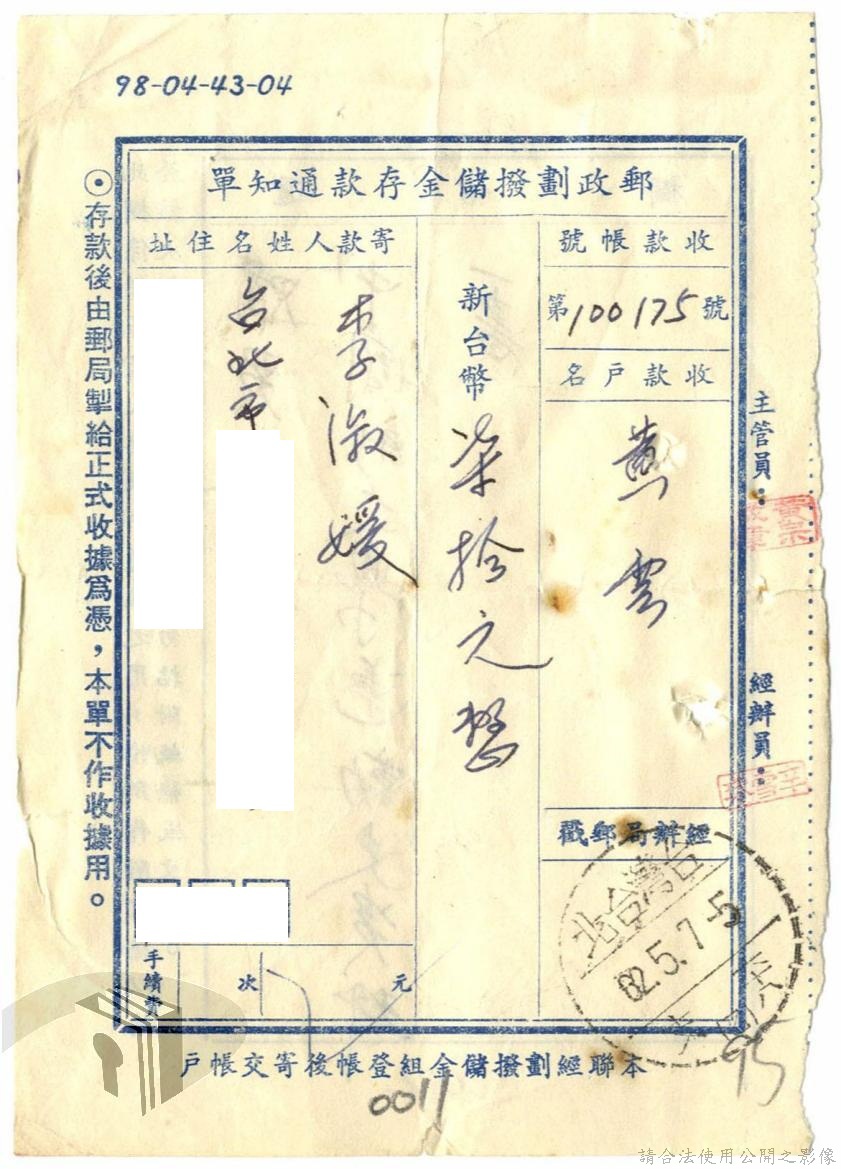 98-04-43-04
郵政劃撥儲金存款通知單
收款帳號
第100175號
收款戶名
黃雲
經辦局郵戳
新台幣
柒拾元整
寄款人姓名住址
李淑媛
台北市
手續費
次
元
主管員：
經辦員：
⊙存款後由郵局掣給正式收據爲憑，本單不作收據用。
台灣台北
62.5.7
本聯經劃撥儲金組登帳後寄交帳戶
0011
95
請合法使用公開之影像